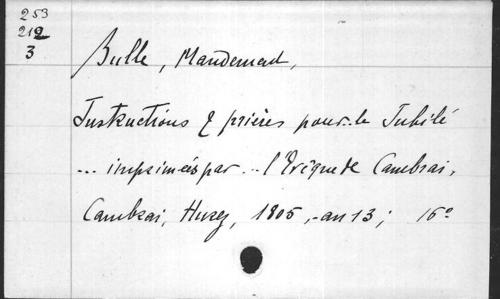 253
212
3
Bulle, Mandement,
Instructions & prières pour le Jubilé
... imprimées par .. l'Evêque de Cambrai,
Cambrai, Hurez, 1805, - an 13; 16°